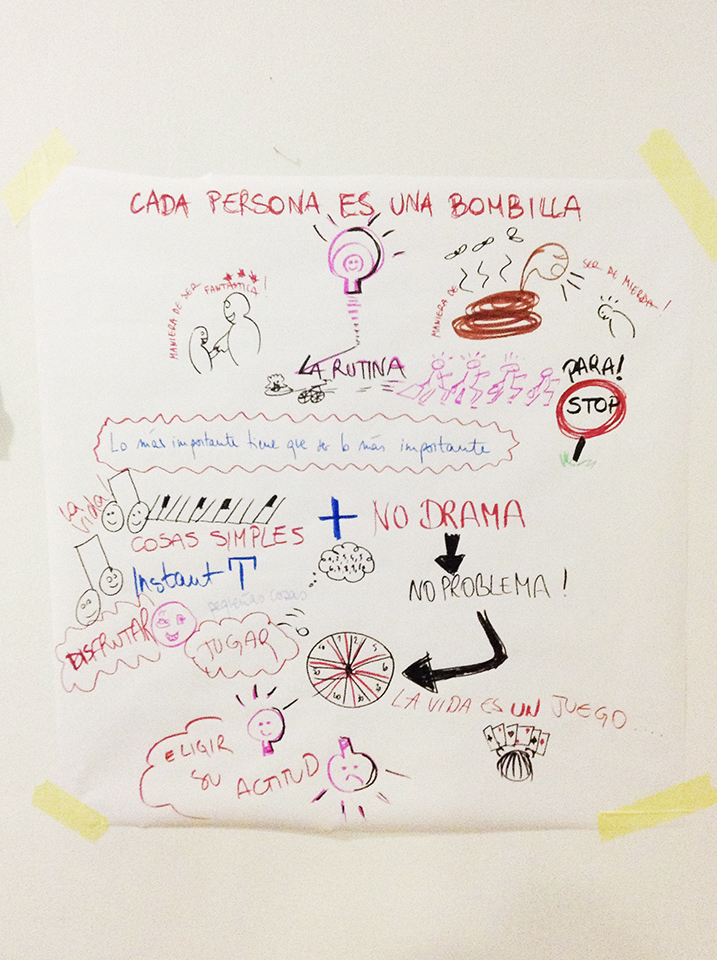 CADA PERSONA ES UNA BOMBILLA
MANIERA DE SER FANTÁSTICA!
MANIERA DE SER DE MIERDA!
LA RUTINA
PARA!
STOP
Lo más importante tiene que ser lo más importante
La vida!
COSAS SIMPLES + NO DRAMA
Instant T
NO PROBLEMA!
pequeñas cosas
DISFRUTAR
JUGAR
LA VIDA ES UN JUEGO...
ELIGIR
SU ACTITUD